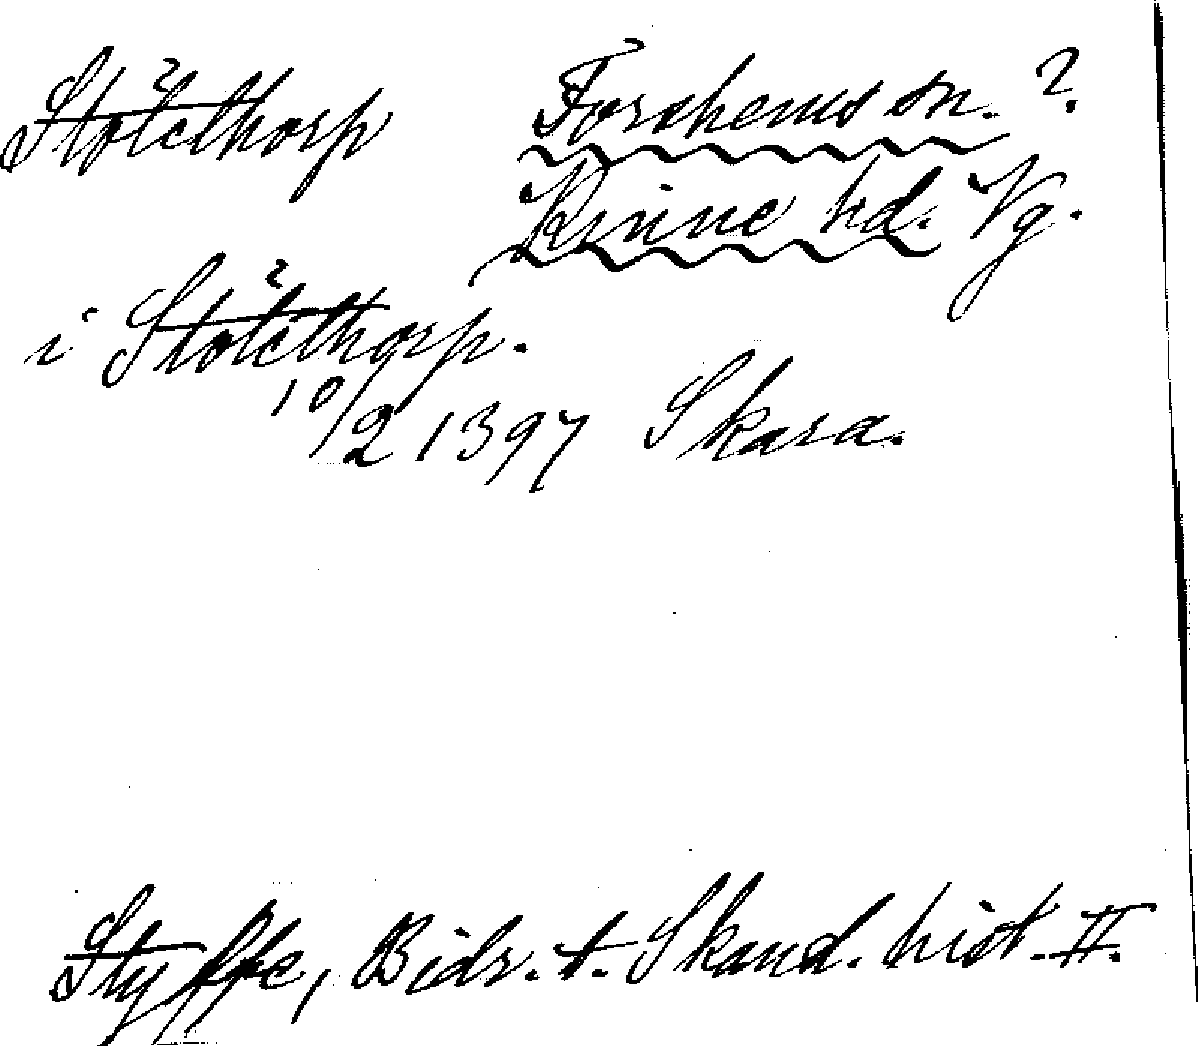 Stölethorp Forshems sn. ?
Kinne hd. Vg.
i Stölethorp.
10/2 1397 Skara.
Styffe, Bidr. t. Skand. hist. II.